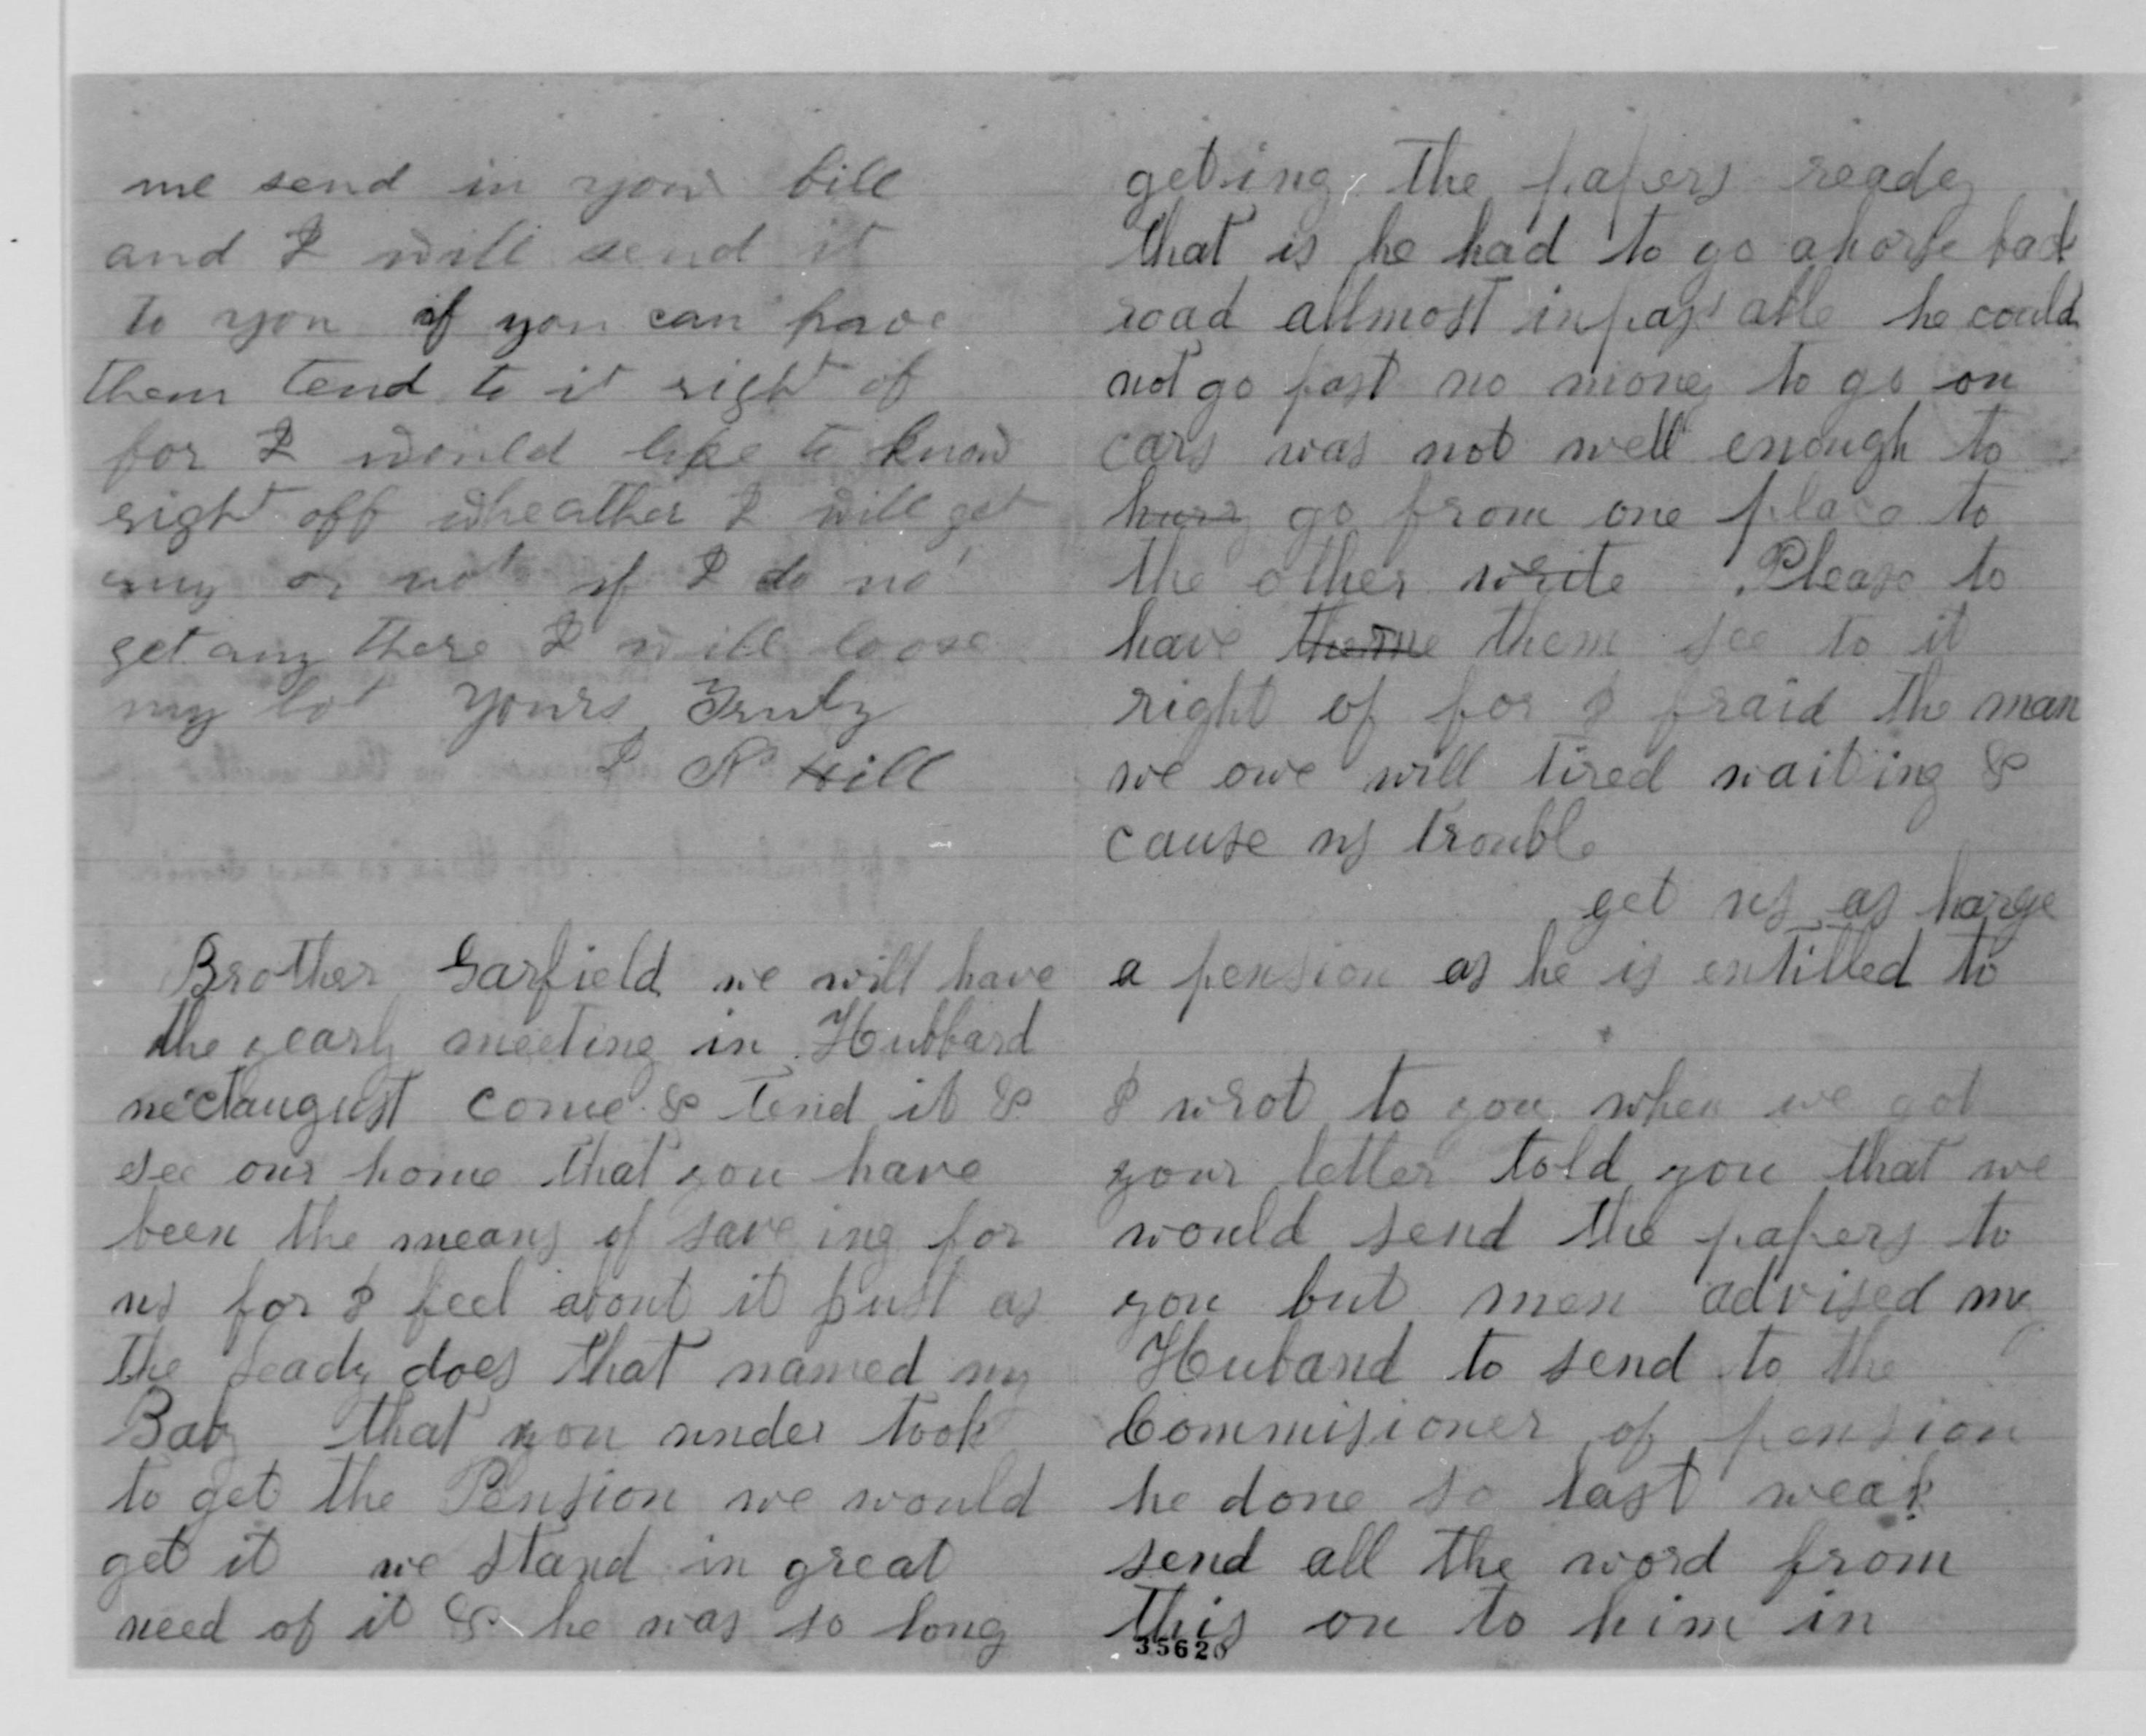 me send in your bill
and I will send it
to you if you can have
them tend to it right of
for I would like to know
right off wheather I will get
any or not if I do no
get any there I will loose
my lot Yours Truly
I N Hill
Brother Garfield we will have
the yearly meeting in Hubbard
nectaugust come & tend it &
see our home that you have
been the means of save ing for
us for I feel about it just as
the leady does that named my
Baby that you under took
to get the Pension we would
get it we stand in great
need of it & he was so long
geting the papers ready
that is he had to go ahorse back
road allmost inpassable he could
not go fast no money to go on
cars was not well enough to
hury go from one place to
the other write Please to
have theme them see to it
right of for I fraid the man
we owe will tired waiting &
cause us trouble
get us as large
a pension as he is entitled to
I wrot to you when we got
your letter told you that we
would send the papers to
you but men advised my
Huband to send to the
Commisioner of pension
he done so last weak
send all the word from
this on to him in
35620